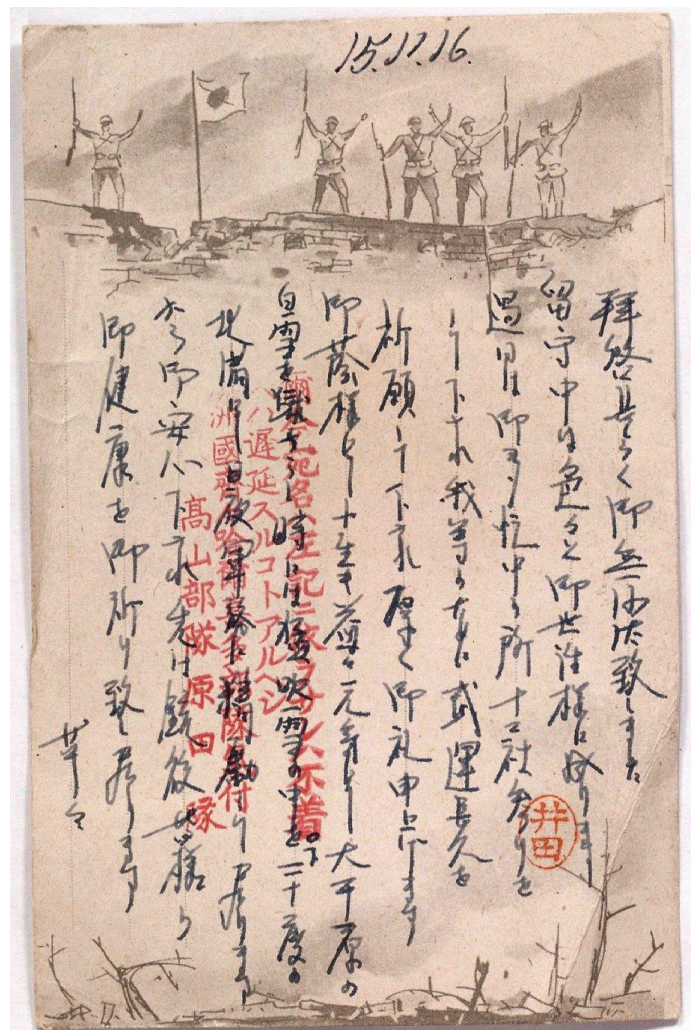 15.11.16.
拝啓長らく御無沙汰致しました
留守中は色々と御世話様に成ります
過日は御多忙中の所十二社参りを
して下され我等の為に武運長久を
祈願して下され厚く御礼申上げます
御蔭様にて小生も益々元気にて大平原の
白雪を時には猛吹雪の中を二十度の
北満にて日夜軍務に精励致して居ります
から御安心下され先は銃後皆様の
御健康を御祈り致し居ります
草々
井田
爾今宛名ハ左記ニ依ラザレバ不着
又ハ遅延スルコトアルベシ
洲國齊哈爾部隊氣付
高山部隊原田隊